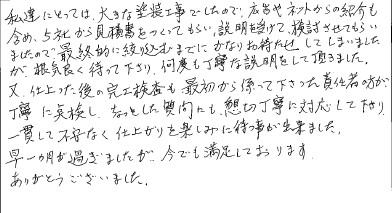 私達にとっては、大きな塗装工事でしたので、広告やネットからの紹介も
含め、5社から見積書をつくってもらい、説明を受けて、検討させてもらい
ましたので最終的に絞り込むまでにかなりお待たせしてしまいました
が、根気良く待って下さり、何度も丁寧な説明をして頂きました。
又、仕上った後の完工検査も最初から係って下さった責任者の方が
丁寧に点検し、ちょっとした質問にも、懇切丁寧に対応して下さり
一貫して不安なく仕上がりを楽しみに待つ事が出来ました。
早一ヶ月が過ぎましたが、今でも満足しております。
ありがとうございました。